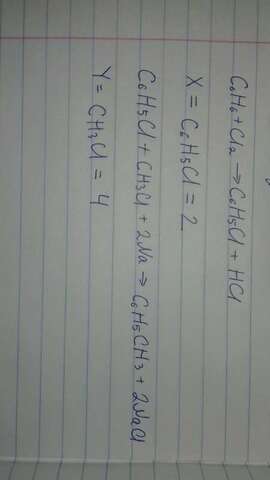 C6H6 + Cl2 → C6H5Cl + HCl
X = C6H5Cl = 2
C6H5Cl + CH3Cl + 2Na → C6H5CH3 + 2NaCl
Y = CH3Cl = 4